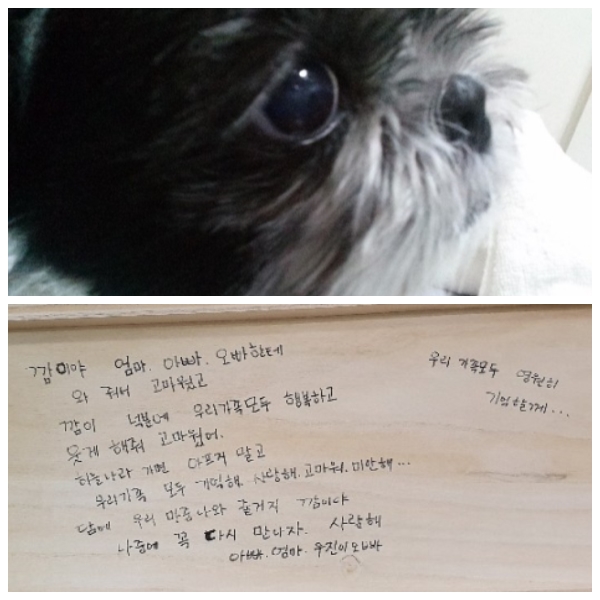 깜미야 엄마. 아빠. 오빠한테
와 줘서 고마웠고
깜이 덕분에 우리가족모두 행복하고
웃게 해줘 고마웠어.
하늘나라 가면 아프지 말고
우리가족 모두 기억해. 사랑해. 고마워. 미안해...
담에 우리 만중나와 줄거지 깜이야
나중에 꼭 다시 만나자. 사랑해
아빠. 엄마. 우진이오빠
우리 가족모두 영원히
기억할게...